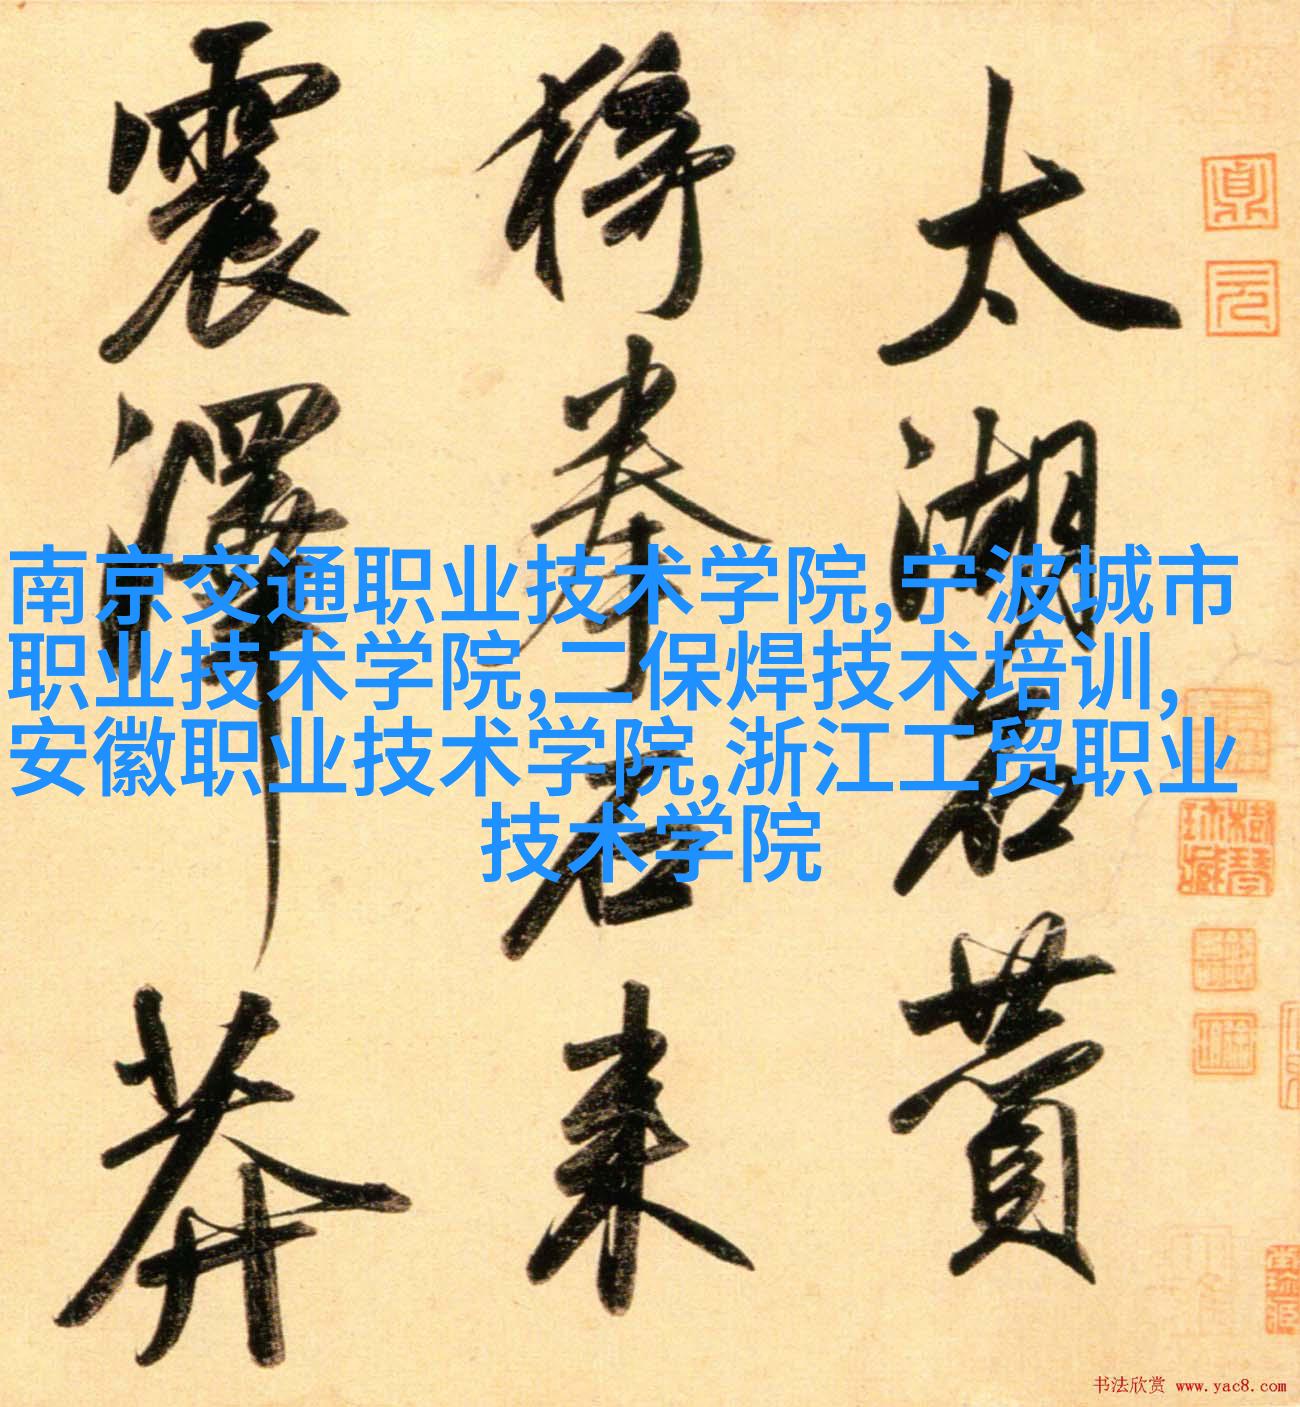 南京交通职业技术学院,宁波城市
职业技术学院,二保焊技术培训,
安徽职业技术学院,浙江工贸职业
技术学院
太湖
拳石来
震澤莽
书法欣赏 www.yac8.com